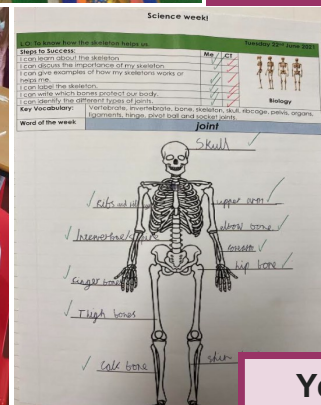 Science week!
L.O: To know how the skeleton helps us
Tuesday 22nd June 2021
Steps to Success:
Me
CT
I can learn about the skeleton
I can discuss the importance of my skeleton
I can give examples of how my skeletons works or
helps me.
I can label the skeleton.
I can write which bones protect our body.
I can identify the different types of joints.
Biology
Key Vocabulary:
Vertebrate, invertebrate, bone, skeleton, skull, ribcage, pelvis, organs,
ligaments, hinge, pivot ball and socket joints
Word of the week
joint
Skull
Ribs
upper arm
elbow bone
hip bone
finger bones
Thigh bones
Calk bone
shin
Yo